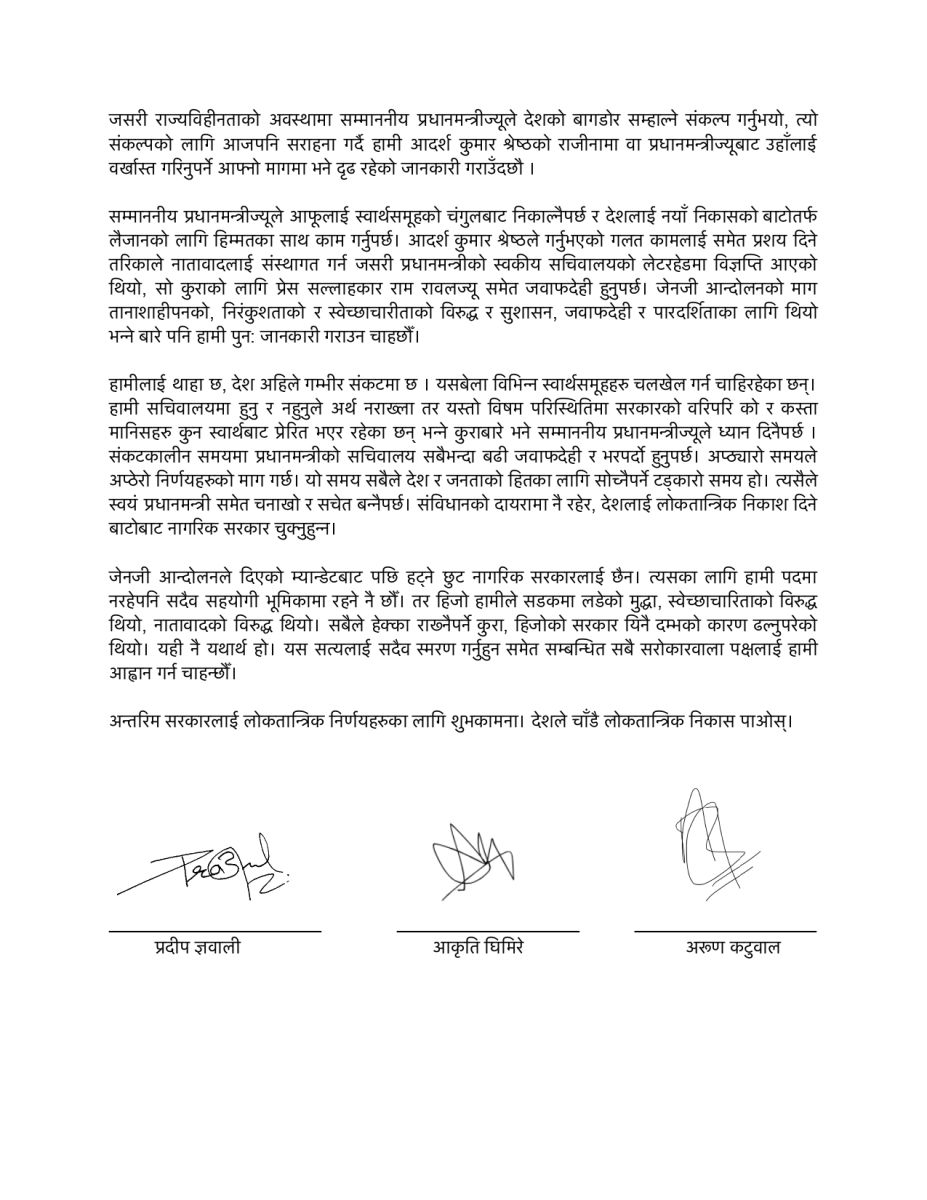 जसरी राज्यविहीनताको अवस्थामा सम्माननीय प्रधानमन्त्रीज्यूले देशको बागडोर सम्हाल्ने संकल्प गर्नुभयो, त्यो
संकल्पको लागि आजपनि सराहना गर्दै हामी आदर्श कुमार श्रेष्ठको राजीनामा वा प्रधानमन्त्रीज्यूबाट उहाँलाई
वर्खास्त गरिनुपर्ने आफ्नो मागमा भने दृढ रहेको जानकारी गराउँदछौ ।
सम्माननीय प्रधानमन्त्रीज्यूले आफूलाई स्वार्थसमूहको चंगुलबाट निकाल्नैपर्छ र देशलाई नयाँ निकासको बाटोतर्फ
लैजानको लागि हिम्मतका साथ काम गर्नुपर्छ। आदर्श कुमार श्रेष्ठले गर्नुभएको गलत कामलाई समेत प्रशय दिने
तरिकाले नातावादलाई संस्थागत गर्न जसरी प्रधानमन्त्रीको स्वकीय सचिवालयको लेटरहेडमा विज्ञप्ति आएको
थियो, सो कुराको लागि प्रेस सल्लाहकार राम रावलज्यू समेत जवाफदेही हुनुपर्छ। जेनजी आन्दोलनको माग
तानाशाहीपनको, निरंकुशताको र स्वेच्छाचारीताको विरुद्ध र सुशासन, जवाफदेही र पारदर्शिताका लागि थियो
भन्ने बारे पनि हामी पुन: जानकारी गराउन चाहछौँ।
हामीलाई थाहा छ, देश अहिले गम्भीर संकटमा छ । यसबेला विभिन्न स्वार्थसमूहहरु चलखेल गर्न चाहिरहेका छन्।
हामी सचिवालयमा हुनु र नहुनुले अर्थ नराख्ला तर यस्तो विषम परिस्थितिमा सरकारको वरिपरि को र कस्ता
मानिसहरु कुन स्वार्थबाट प्रेरित भएर रहेका छन् भन्ने कुराबारे भने सम्माननीय प्रधानमन्त्रीज्यूले ध्यान दिनैपर्छ ।
संकटकालीन समयमा प्रधानमन्त्रीको सचिवालय सबैभन्दा बढी जवाफदेही र भरपर्दो हुनुपर्छ। अप्ठ्यारो समयले
अप्ठेरो निर्णयहरुको माग गर्छ। यो समय सबैले देश र जनताको हितका लागि सोच्नैपर्ने टड्कारो समय हो। त्यसैले
स्वयं प्रधानमन्त्री समेत चनाखो र सचेत बन्नैपर्छ। संविधानको दायरामा नै रहेर, देशलाई लोकतान्त्रिक निकाश दिने
बाटोबाट नागरिक सरकार चुक्नुहुन्न।
जेनजी आन्दोलनले दिएको म्यान्डेटबाट पछि हट्ने छुट नागरिक सरकारलाई छैन। त्यसका लागि हामी पदमा
नरहेपनि सदैव सहयोगी भूमिकामा रहने नै छौँ। तर हिजो हामीले सडकमा लडेको मुद्धा, स्वेच्छाचारिताको विरुद्ध
थियो, नातावादको विरुद्ध थियो। सबैले हेक्का राख्नैपर्ने कुरा, हिजोको सरकार यिनै दम्भको कारण ढल्नुपरेको
थियो। यही नै यथार्थ हो। यस सत्यलाई सदैव स्मरण गर्नुहुन समेत सम्बन्धित सबै सरोकारवाला पक्षलाई हामी
आह्वान गर्न चाहन्छौँ।
अन्तरिम सरकारलाई लोकतान्त्रिक निर्णयहरुका लागि शुभकामना। देशले चाँडै लोकतान्त्रिक निकास पाओस्।
प्रदीप ज्ञवाली आकृति घिमिरे अरूण कटुवाल